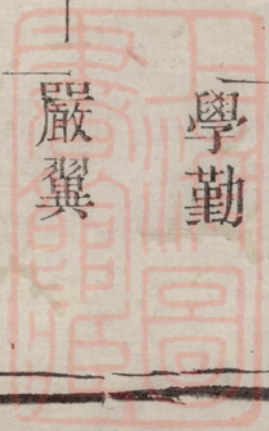 學勤
嚴翼